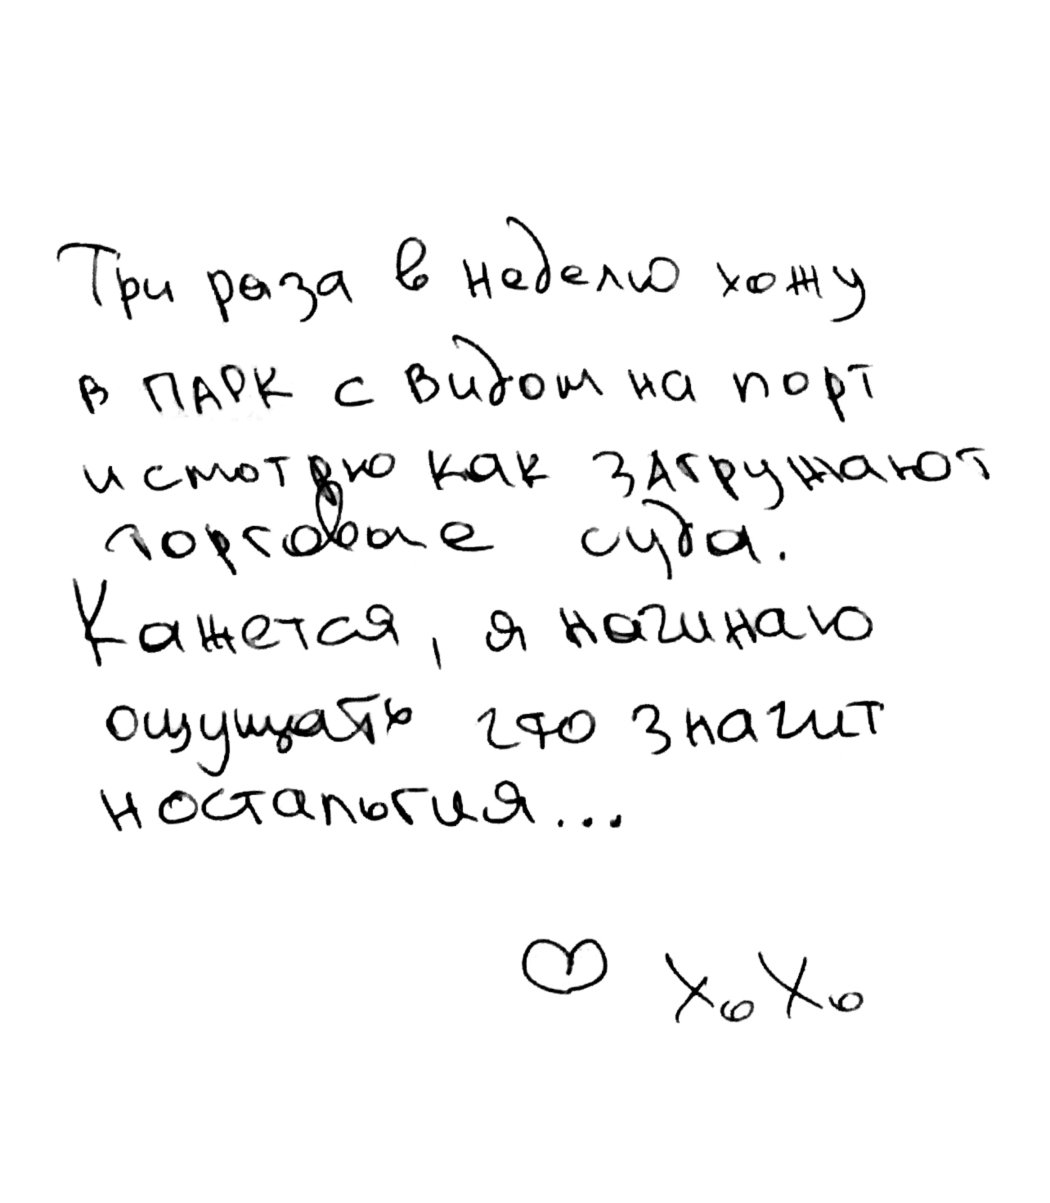 Три раза в неделю хожу
в ПАРК с видом на порт
и смотрю как загружают
торговые суда.
Кажется, я начинаю
ощущать что значит
ностальгия...
♡ XoXo